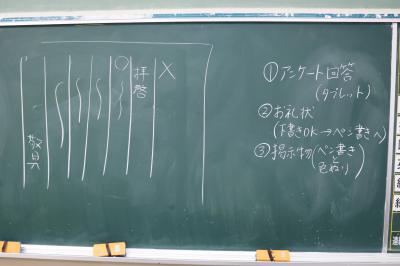 拝啓
敬具
①アンケート回答
(タブレット)
②お礼状
(下書きOK→ペン書きへ)
③掲示物(ペン書きと色ぬり)